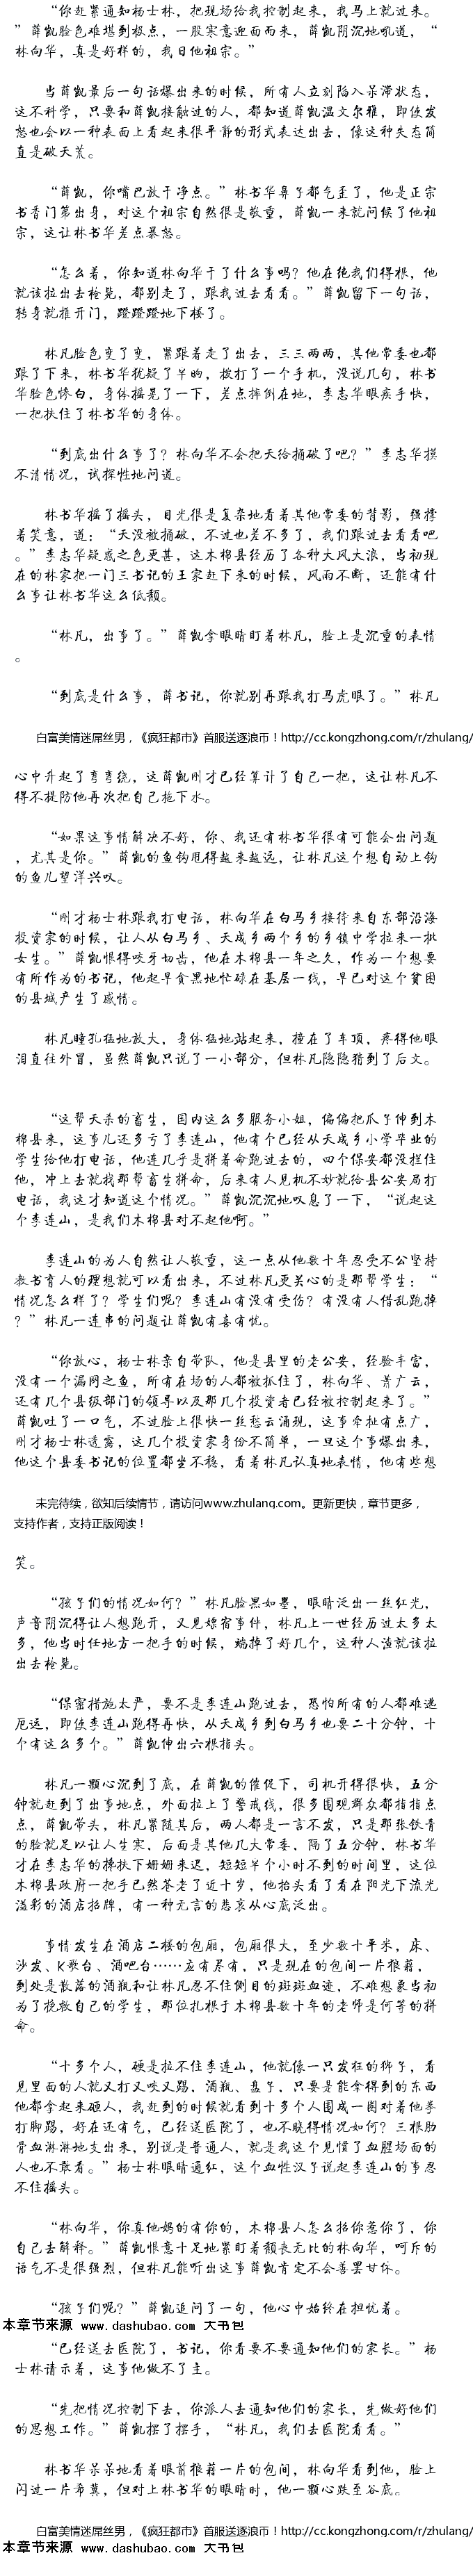 “你赶紧通知杨士林，把现场给我控制起来，我马上就过来。
”薛凯脸色难堪到极点，一股寒意迎面而来，薛凯阴沉地吼道，“
林向华，真是好样的，我日他祖宗。”
当薛凯最后一句话爆出来的时候，所有人立刻陷入呆滞状态，
这不科学，只要和薛凯接触过的人，都知道薛凯温文尔雅，即使发
怒也会以一种表面上看起来很平静的形式表达出去，像这种失态简
直是破天荒。
“薛凯，你嘴巴放干净点。”林书华鼻子都气歪了，他是正宗
书香门第出身，对这个祖宗自然很是敬重，薛凯一来就问候了他祖
宗，这让林书华差点暴怒。
“怎么着，你知道林向华干了什么事吗？他在绝我们得根，他
就该拉出去枪毙，都别走了，跟我过去看看。”薛凯留下一句话，
转身就推开门，蹬蹬蹬地下楼了。
林凡脸色变了变，紧跟着走了出去，三三两两，其他常委也都
跟了下来，林书华犹疑了半晌，拨打了一个手机，没说几句，林书
华脸色惨白，身体摇晃了一下，差点摔倒在地，李志华眼疾手快，
一把扶住了林书华的身体。
“到底出什么事了？林向华不会把天给捅破了吧？”李志华摸
不清情况，试探性地问道。
林书华摇了摇头，目光很是复杂地看着其他常委的背影，强撑
着笑意，道：“天没被捅破，不过也差不多了，我们跟过去看看吧
。”李志华疑惑之色更甚，这木棉县经历了各种大风大浪，当初现
在的林家把一门三书记的王家赶下来的时候，风雨不断，还能有什
么事让林书华这么低颓。
“林凡，出事了。”薛凯拿眼睛盯着林凡，脸上是沉重的表情
。
“到底是什么事，薛书记，你就别再跟我打马虎眼了。”林凡
白富美情迷屌丝男，《疯狂都市》首服送逐浪币！http://cc.kongzhong.com/r/zhulang/
心中升起了弯弯绕，这薛凯刚才已经算计了自己一把，这让林凡不
得不提防他再次把自己拖下水。
“如果这事情解决不好，你、我还有林书华很有可能会出问题
，尤其是你。”薛凯的鱼钩甩得越来越远，让林凡这个想自动上钩
的鱼儿望洋兴叹。
“刚才杨士林跟我打电话，林向华在白马乡接待来自东部沿海
投资家的时候，让人从白马乡、天成乡两个乡的乡镇中学拉来一批
女生。”薛凯恨得咬牙切齿，他在木棉县一年之久，作为一个想要
有所作为的书记，他起早贪黑地忙碌在基层一线，早已对这个贫困
的县城产生了感情。
林凡瞳孔猛地放大，身体猛地站起来，撞在了车顶，疼得他眼
泪直往外冒，虽然薛凯只说了一小部分，但林凡隐隐猜到了后文。
“这帮天杀的畜生，国内这么多服务小姐，偏偏把爪子伸到木
棉县来，这事儿还多亏了李连山，他有个已经从天成乡小学毕业的
学生给他打电话，他连几乎是拼着命跑过去的，四个保安都没拦住
他，冲上去就找那帮畜生拼命，后来有人见机不妙就给县公安局打
电话，我这才知道这个情况。”薛凯沉沉地叹息了一下，“说起这
个李连山，是我们木棉县对不起他啊。”
李连山的为人自然让人敬重，这一点从他数十年忍受不公坚持
教书育人的理想就可以看出来，不过林凡更关心的是那帮学生：“
情况怎么样了？学生们呢？李连山有没有受伤？有没有人借乱跑掉
？”林凡一连串的问题让薛凯有喜有忧。
“你放心，杨士林亲自带队，他是县里的老公安，经验丰富，
没有一个漏网之鱼，所有在场的人都被抓住了，林向华、萧广云，
还有几个县级部门的领导以及那几个投资者已经被控制起来了。”
薛凯吐了一口气，不过脸上很快一丝愁云涌现，这事牵扯有点广，
刚才杨士林透露，这几个投资家身份不简单，一旦这个事爆出来，
他这个县委书记的位置都坐不稳，看着林凡认真地表情，他有些想
未完待续，欲知后续情节，请访问www.zhulang.com。更新更快，章节更多，
支持作者，支持正版阅读！
笑。
“孩子们的情况如何？”林凡脸黑如墨，眼睛泛出一丝红光，
声音阴沉得让人想跑开，又见嫖宿事件，林凡上一世经历过太多太
多，他当时任地方一把手的时候，端掉了好几个，这种人渣就该拉
出去枪毙。
“保密措施太严，要不是李连山跑过去，恐怕所有的人都难逃
厄运，即使李连山跑得再快，从天成乡到白马乡也要二十分钟，十
个有这么多个。”薛凯伸出六根指头。
林凡一颗心沉到了底，在薛凯的催促下，司机开得很快，五分
钟就赶到了出事地点，外面拉上了警戒线，很多围观群众都指指点
点，薛凯带头，林凡紧随其后，两人都是一言不发，只是那张铁青
的脸就足以让人生寒，后面是其他几大常委，隔了五分钟，林书华
才在李志华的搀扶下姗姗来迟，短短半个小时不到的时间里，这位
木棉县政府一把手已然苍老了近十岁，他抬头看了看在阳光下流光
溢彩的酒店招牌，有一种无言的悲哀从心底泛出。
事情发生在酒店二楼的包厢，包厢很大，至少数十平米，床、
沙发、K歌台、酒吧台……应有尽有，只是现在的包间一片狼藉，
到处是散落的酒瓶和让林凡忍不住侧目的斑斑血迹，不难想象当初
为了挽救自己的学生，那位扎根于木棉县数十年的老师是何等的拼
命。
“十多个人，硬是拉不住李连山，他就像一只发狂的狮子，看
见里面的人就又打又咬又踢，酒瓶、盘子，只要是能拿得到的东西
他都拿起来砸人，我赶到的时候就看到十多个人围成一团对着他拳
打脚踢，好在还有气，已经送医院了，也不晓得情况如何？三根肋
骨血淋淋地支出来，别说是普通人，就是我这个见惯了血腥场面的
人也不敢看。”杨士林眼睛通红，这个血性汉子说起李连山的事忍
不住摇头。
“林向华，你真他妈的有你的，木棉县人怎么招你惹你了，你
自己去解释。”薛凯恨意十足地紧盯着颓丧无比的林向华，呵斥的
语气不是很强烈，但林凡能听出这事薛凯肯定不会善罢甘休。
“孩子们呢？”薛凯追问了一句，他心中始终在担忧着。
本章节来源 www.dashubao.com 大书包
“已经送去医院了，书记，你看要不要通知他们的家长。”杨
士林请示着，这事他做不了主。
“先把情况控制下去，你派人去通知他们的家长，先做好他们
的思想工作。”薛凯摆了摆手，“林凡，我们去医院看看。”
林书华呆呆地看着眼前狼藉一片的包间，林向华看到他，脸上
闪过一片希冀，但对上林书华的眼睛时，他一颗心跌至谷底。
白富美情迷屌丝男，《疯狂都市》首服送逐浪币！http://cc.kongzhong.com/r/zhulang/
本章节来源 www.dashubao.com 大书包